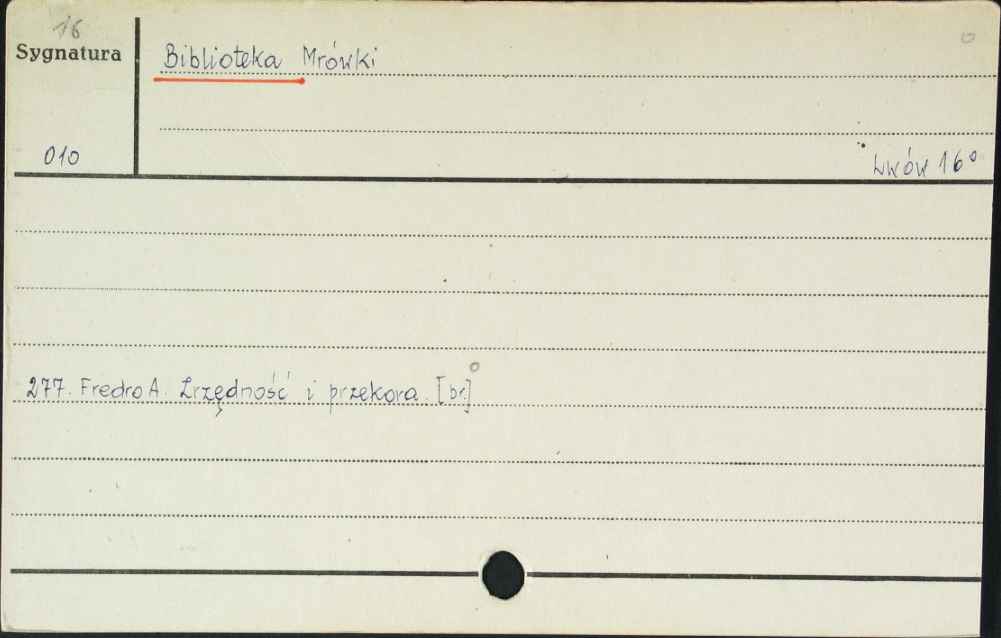 16
Sygnatura
Biblioteka Mrówki
010
Lwów 16°
277. Fredro A. Zrzędność i przekora. [br.]